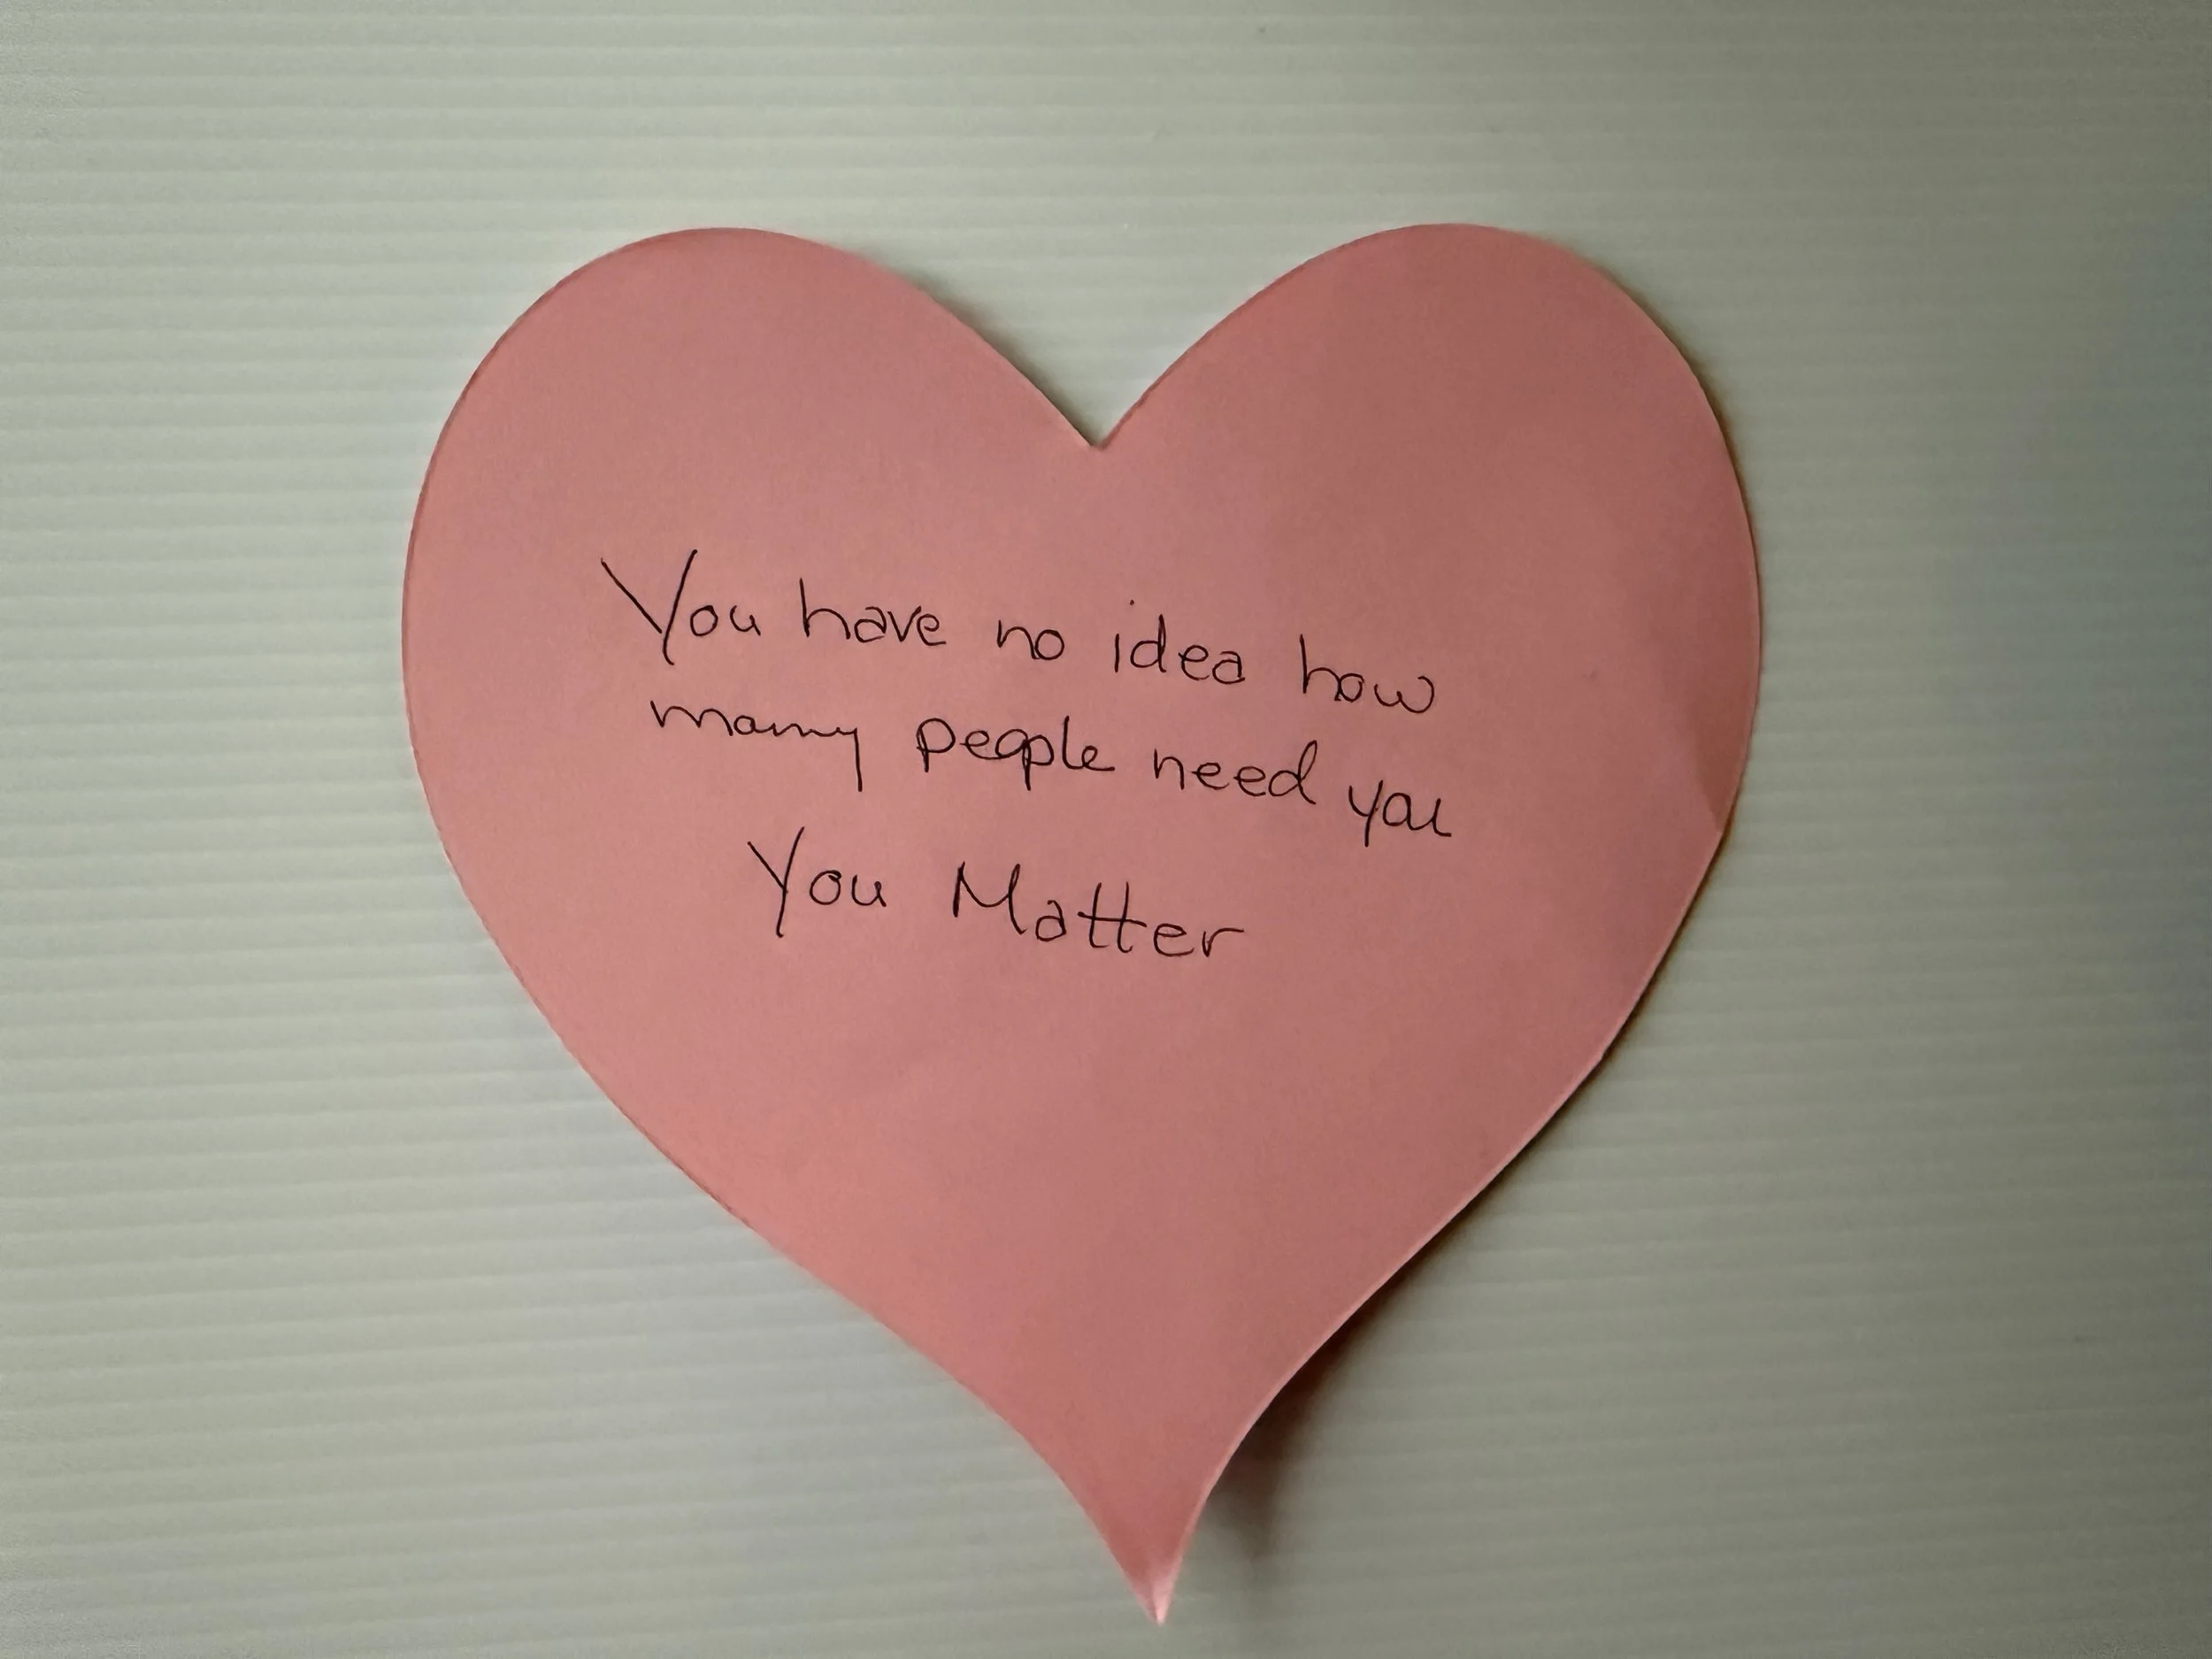 You have no idea how
many people need you
You Matter